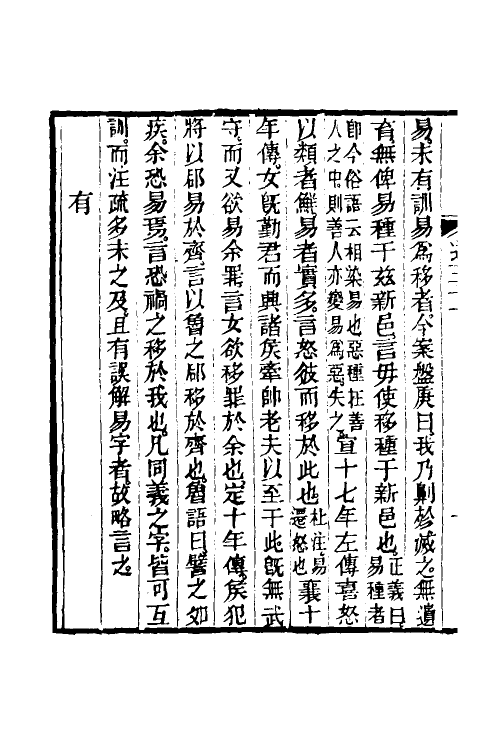 易未有訓易爲移者今案盤庚曰我乃劓殄滅之無遺
育無俾易種于茲新邑言毋使移種于新邑也正義曰易種者
即今俗語云相染易也惡種在善人之中則善人亦變易爲惡失之宣十七年左傳喜怒
以類者鮮易者實多言怒彼而移於此也杜注易遷怒也襄十
年傳女旣勤君而興諸矦牽帥老夫以至于此旣無武
守而又欲易余罪言女欲移罪於余也定十年傳矦犯
將以郈易於齊言以魯之郈移於齊也魯語曰譬之如
疾余恐易焉言恐禍之移於我也凡同義之字皆可互
訓而注疏多未之及且有誤解易字者故略言之
有